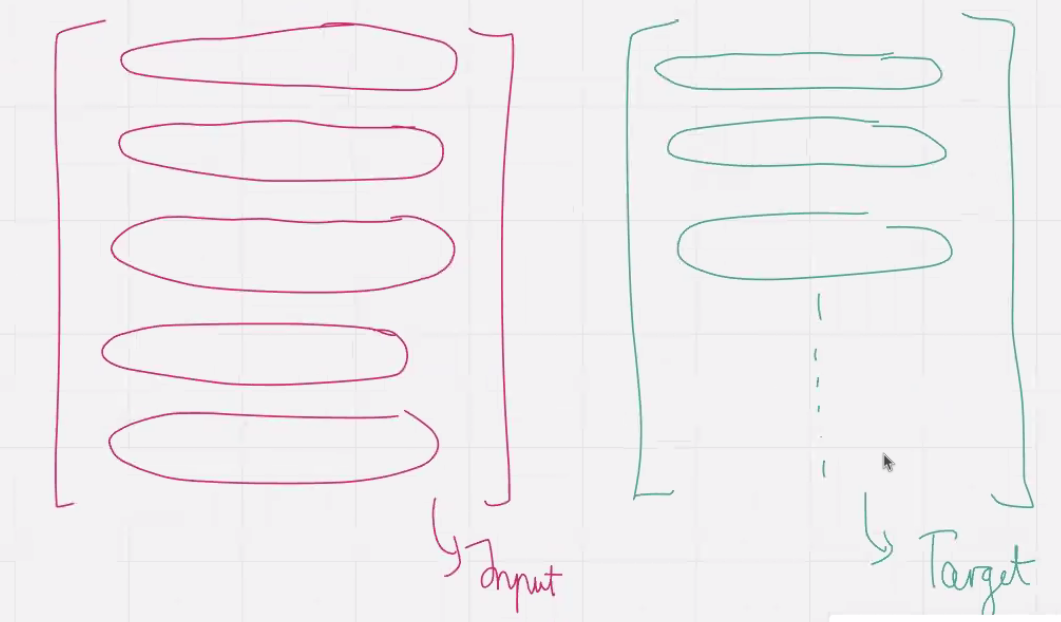 Input
Target